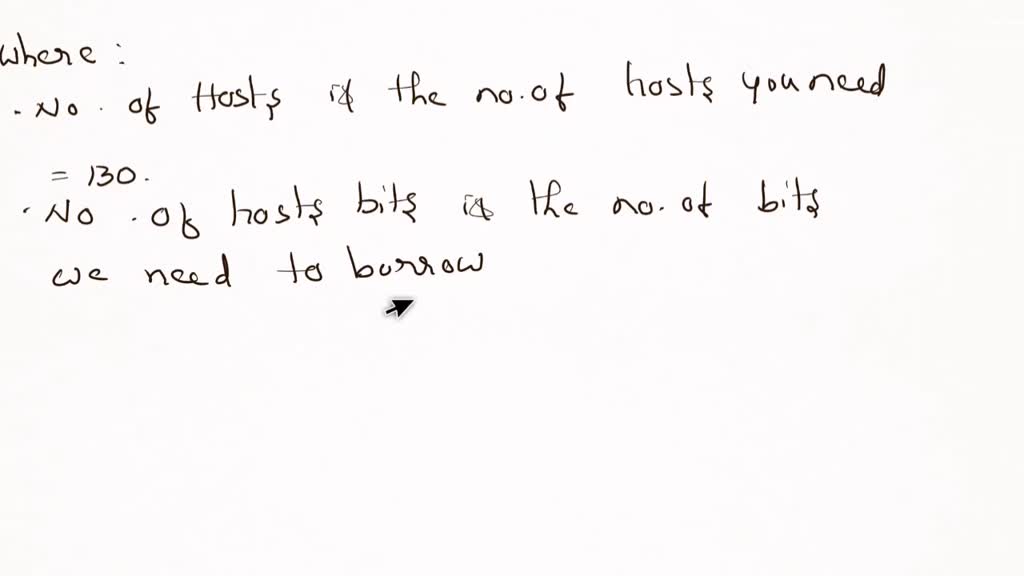 where :
. No . of Hosts is the no. of hosts you need
= 130.
. No . of hosts bits is the no. of bits
we need to borrow